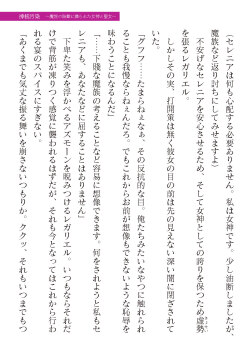 神核汚染 ～魔悦の胎動に濡らされた女神と聖女～
（セレニアは何も心配する必要ありません。私は女神です。少し油断しましたが、
魔族など返り討ちにしてみせますよ）
不安げなセレニアを安心させるため、そして女神としての誇りを保つため虚勢
を張るレガリエル。
しかしその実、打開策は無く彼女の目の前は先の見えない深い闇に閉ざされて
いた。
「グフフ……たまらねぇなぁ、その反抗的な目。俺たちみたいなやつに触れられ
ることも我慢ならねぇんだろ？これからお前が想像もできないような恥辱を
味わうことになるんだ」
「……下賤な魔族の言うことなど容易に想像できます。何をされようと私もセ
レニアも、あなたなどに屈することはありません」
下卑た笑みを浮かべるアズモーンを睨みつけるレガリエル。いつもならそれだ
けで背筋が凍りつく感覚に襲われるはずだが、それも今となってはこれから訪
れる宴のスパイスにすぎない。
「あくまでも気丈な振る舞いを崩さないつもりか。ククッ、それもいつまでもつ